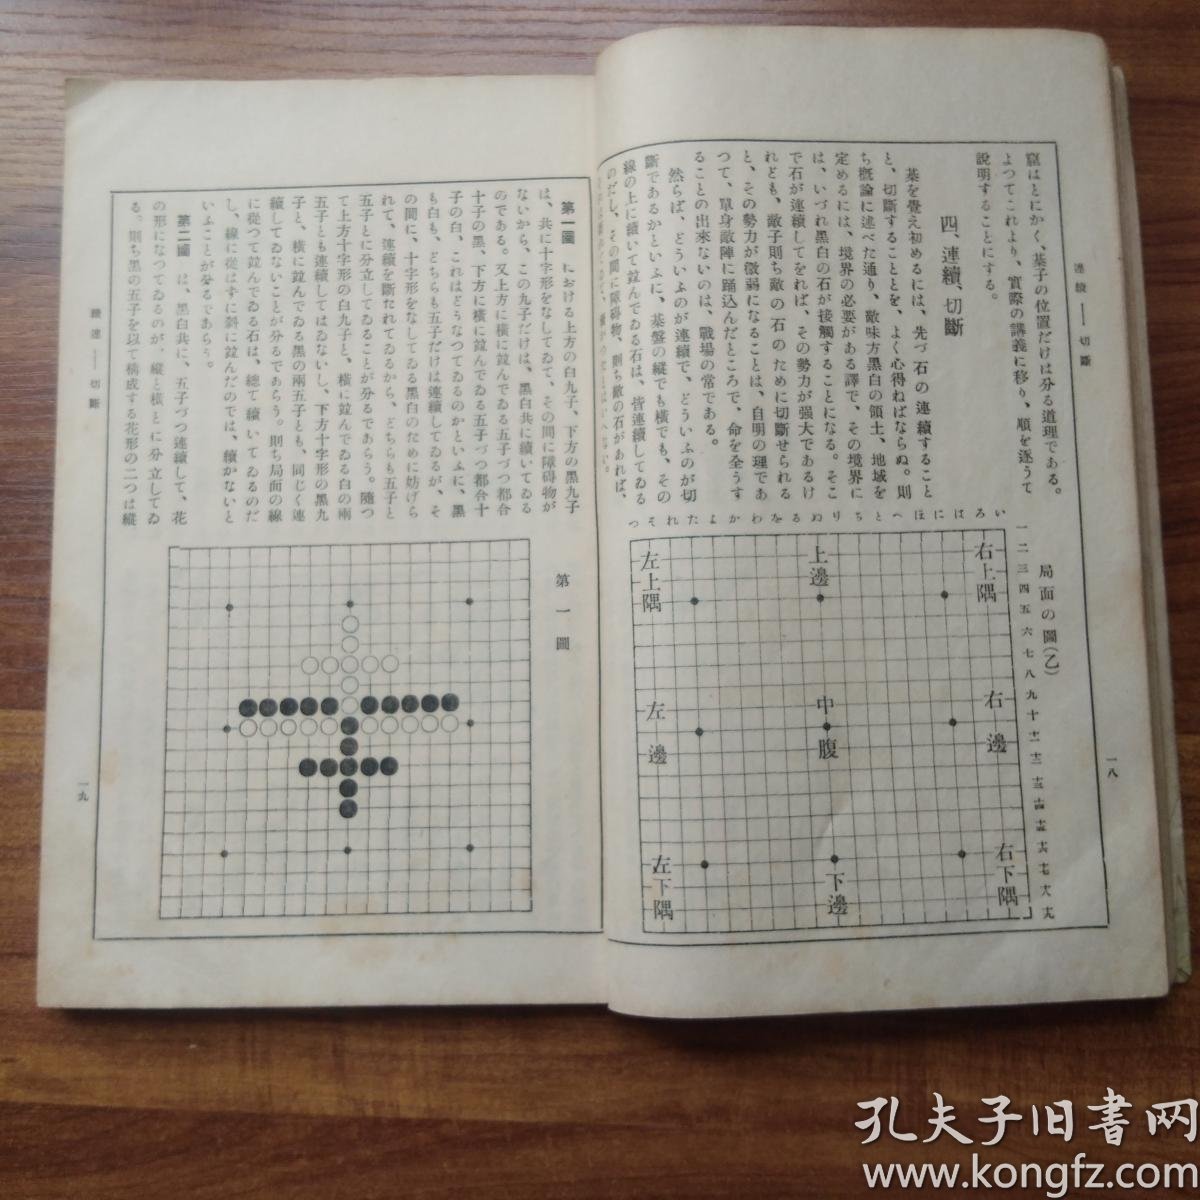 連続――切斷
一八
窺はとにかく、碁子の位置だけは分る道理である。
よつてこれより、實際の講義に移り、順を逐うて
説明することにする。
四、連續、切斷
碁を覺え初めるには、先づ石の連續すること
と、切斷することとを、よく心得ねばならぬ。則
ち概論に述べた通り、敵味方黑白の領土、地域を
定めるには、境界の必要がある譯で、その境界に
は、いづれ黑白の石が接觸することになる。そこ
で石が連續してをれば、その勢力が强大であるけ
れども、敵子則ち敵の石のために切斷せられる
と、その勢力が微弱になることは、自明の理であ
つて、單身敵陣に踊込んだところで、命を全うす
ることの出來ないのは、戰場の常である。
然らば、どういふのが連續で、どういふのが切
斷であるかといふに、碁盤の縱でも横でも、その
線の上に續いて竝んでゐる石は、皆連續してゐる
のだし、その間に障碍物、則ち敵の石があれば、
局面の圖(乙)
いろはにほへとちりぬるをわかよたれそつ
一二三四五六七八九十十一十二十三十四十五十六十七十八十九
右上隅
上邊
左上隅
右邊
中腹
左邊
右下隅
下邊
左下隅
第一圖における上方の白九子、下方の黑九子
は、共に十字形をなしてゐて、その間に障碍物が
ないから、この九子だけは、黑白共に續いてゐる
のである。又上方に橫に竝んでゐる五子づつ都合
十子の黑、下方に橫に竝んでゐる五子づつ都合十
子の白、これはどうなつてゐるのかといふに、黑
も白も、どちらも五子だけは連續してゐるが、そ
の間に、十字形をなしてゐる黑白のために妨げら
れて、連續を斷たれてゐるから、どちらも五子と
五子とに分立してゐることが分るであらう。隨つ
て上方十字形の白九子と、橫に竝んでゐる白の兩
五子とも連續してはゐないし、下方十字形の黑九
子と、橫に竝んでゐる黑の兩五子とも、同じく連
續してゐないことが分るであらう。則ち局面の線
に從つて竝んでゐる石は、總て續いてゐるのだ
し、線に從はずに斜に竝んだのでは、續かないと
いふことが分るであらう。
第二圖は、黑白共に、五子づつ連續して、花
の形になつてゐるのが、縱と橫とに分立してゐ
る。則ち黑の五子を以て構成する花形の二つは縱
第一圖
連續――切斷
一九
孔夫子旧書网
www.kongfz.com